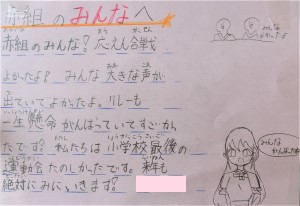 赤組のみんなへ
赤組のみんな?応えん合戦
よかったよ?みんな大きな声が
出ていてよかったよ。リレーも
一生懸命がんばっていてすごかっ
たです?私たちは小学校最後の
運動会たのしかったです。来年も
絶対にみにいきます。
みんな
よかったよ
みんな
がんばったね